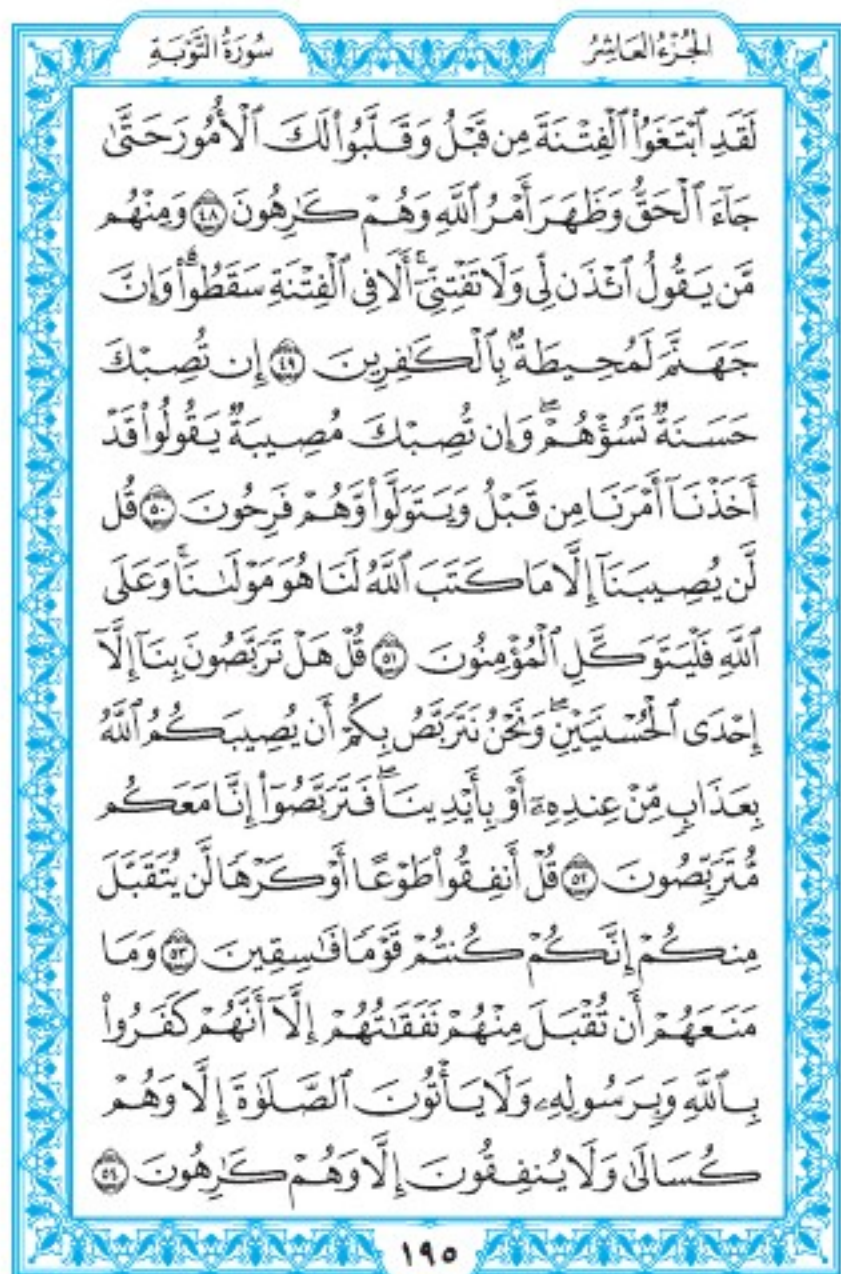 الجُزْءُ العَاشِرُ
سُورَةُ التَّوْبَةِ
لَقَدِ ٱبْتَغَوُاْ ٱلْفِتْنَةَ مِن قَبْلُ وَقَلَّبُواْ لَكَ ٱلْأُمُورَ حَتَّىٰ
جَآءَ ٱلْحَقُّ وَظَهَرَ أَمْرُ ٱللَّهِ وَهُمْ كَٰرِهُونَ ٤٨ وَمِنْهُم
مَّن يَقُولُ ٱئْذَن لِّي وَلَا تَفْتِنِّيٓۚ أَلَا فِي ٱلْفِتْنَةِ سَقَطُواْۗ وَإِنَّ
جَهَنَّمَ لَمُحِيطَةٌۢ بِٱلْكَٰفِرِينَ ٤٩ إِن تُصِبْكَ
حَسَنَةٌ تَسُؤْهُمْۖ وَإِن تُصِبْكَ مُصِيبَةٌ يَقُولُواْ قَدْ
أَخَذْنَآ أَمْرَنَا مِن قَبْلُ وَيَتَوَلَّواْ وَّهُمْ فَرِحُونَ ٥٠ قُل
لَّن يُصِيبَنَآ إِلَّا مَا كَتَبَ ٱللَّهُ لَنَا هُوَ مَوْلَىٰنَاۚ وَعَلَى
ٱللَّهِ فَلْيَتَوَكَّلِ ٱلْمُؤْمِنُونَ ٥١ قُلْ هَلْ تَرَبَّصُونَ بِنَآ إِلَّآ
إِحْدَى ٱلْحُسْنَيَيْنِۖ وَنَحْنُ نَتَرَبَّصُ بِكُمْ أَن يُصِيبَكُمُ ٱللَّهُ
بِعَذَابٍ مِّنْ عِندِهِۦٓ أَوْ بِأَيْدِينَاۖ فَتَرَبَّصُوٓاْ إِنَّا مَعَكُم
مُّتَرَبِّصُونَ ٥٢ قُلْ أَنفِقُواْ طَوْعًا أَوْ كَرْهًا لَّن يُتَقَبَّلَ
مِنكُمْ إِنَّكُمْ كُنتُمْ قَوْمًا فَٰسِقِينَ ٥٣ وَمَا
مَنَعَهُمْ أَن تُقْبَلَ مِنْهُمْ نَفَقَٰتُهُمْ إِلَّآ أَنَّهُمْ كَفَرُواْ
بِٱللَّهِ وَبِرَسُولِهِۦ وَلَا يَأْتُونَ ٱلصَّلَوٰةَ إِلَّا وَهُمْ
كُسَالَىٰ وَلَا يُنفِقُونَ إِلَّا وَهُمْ كَٰرِهُونَ ٥٤
١٩٥